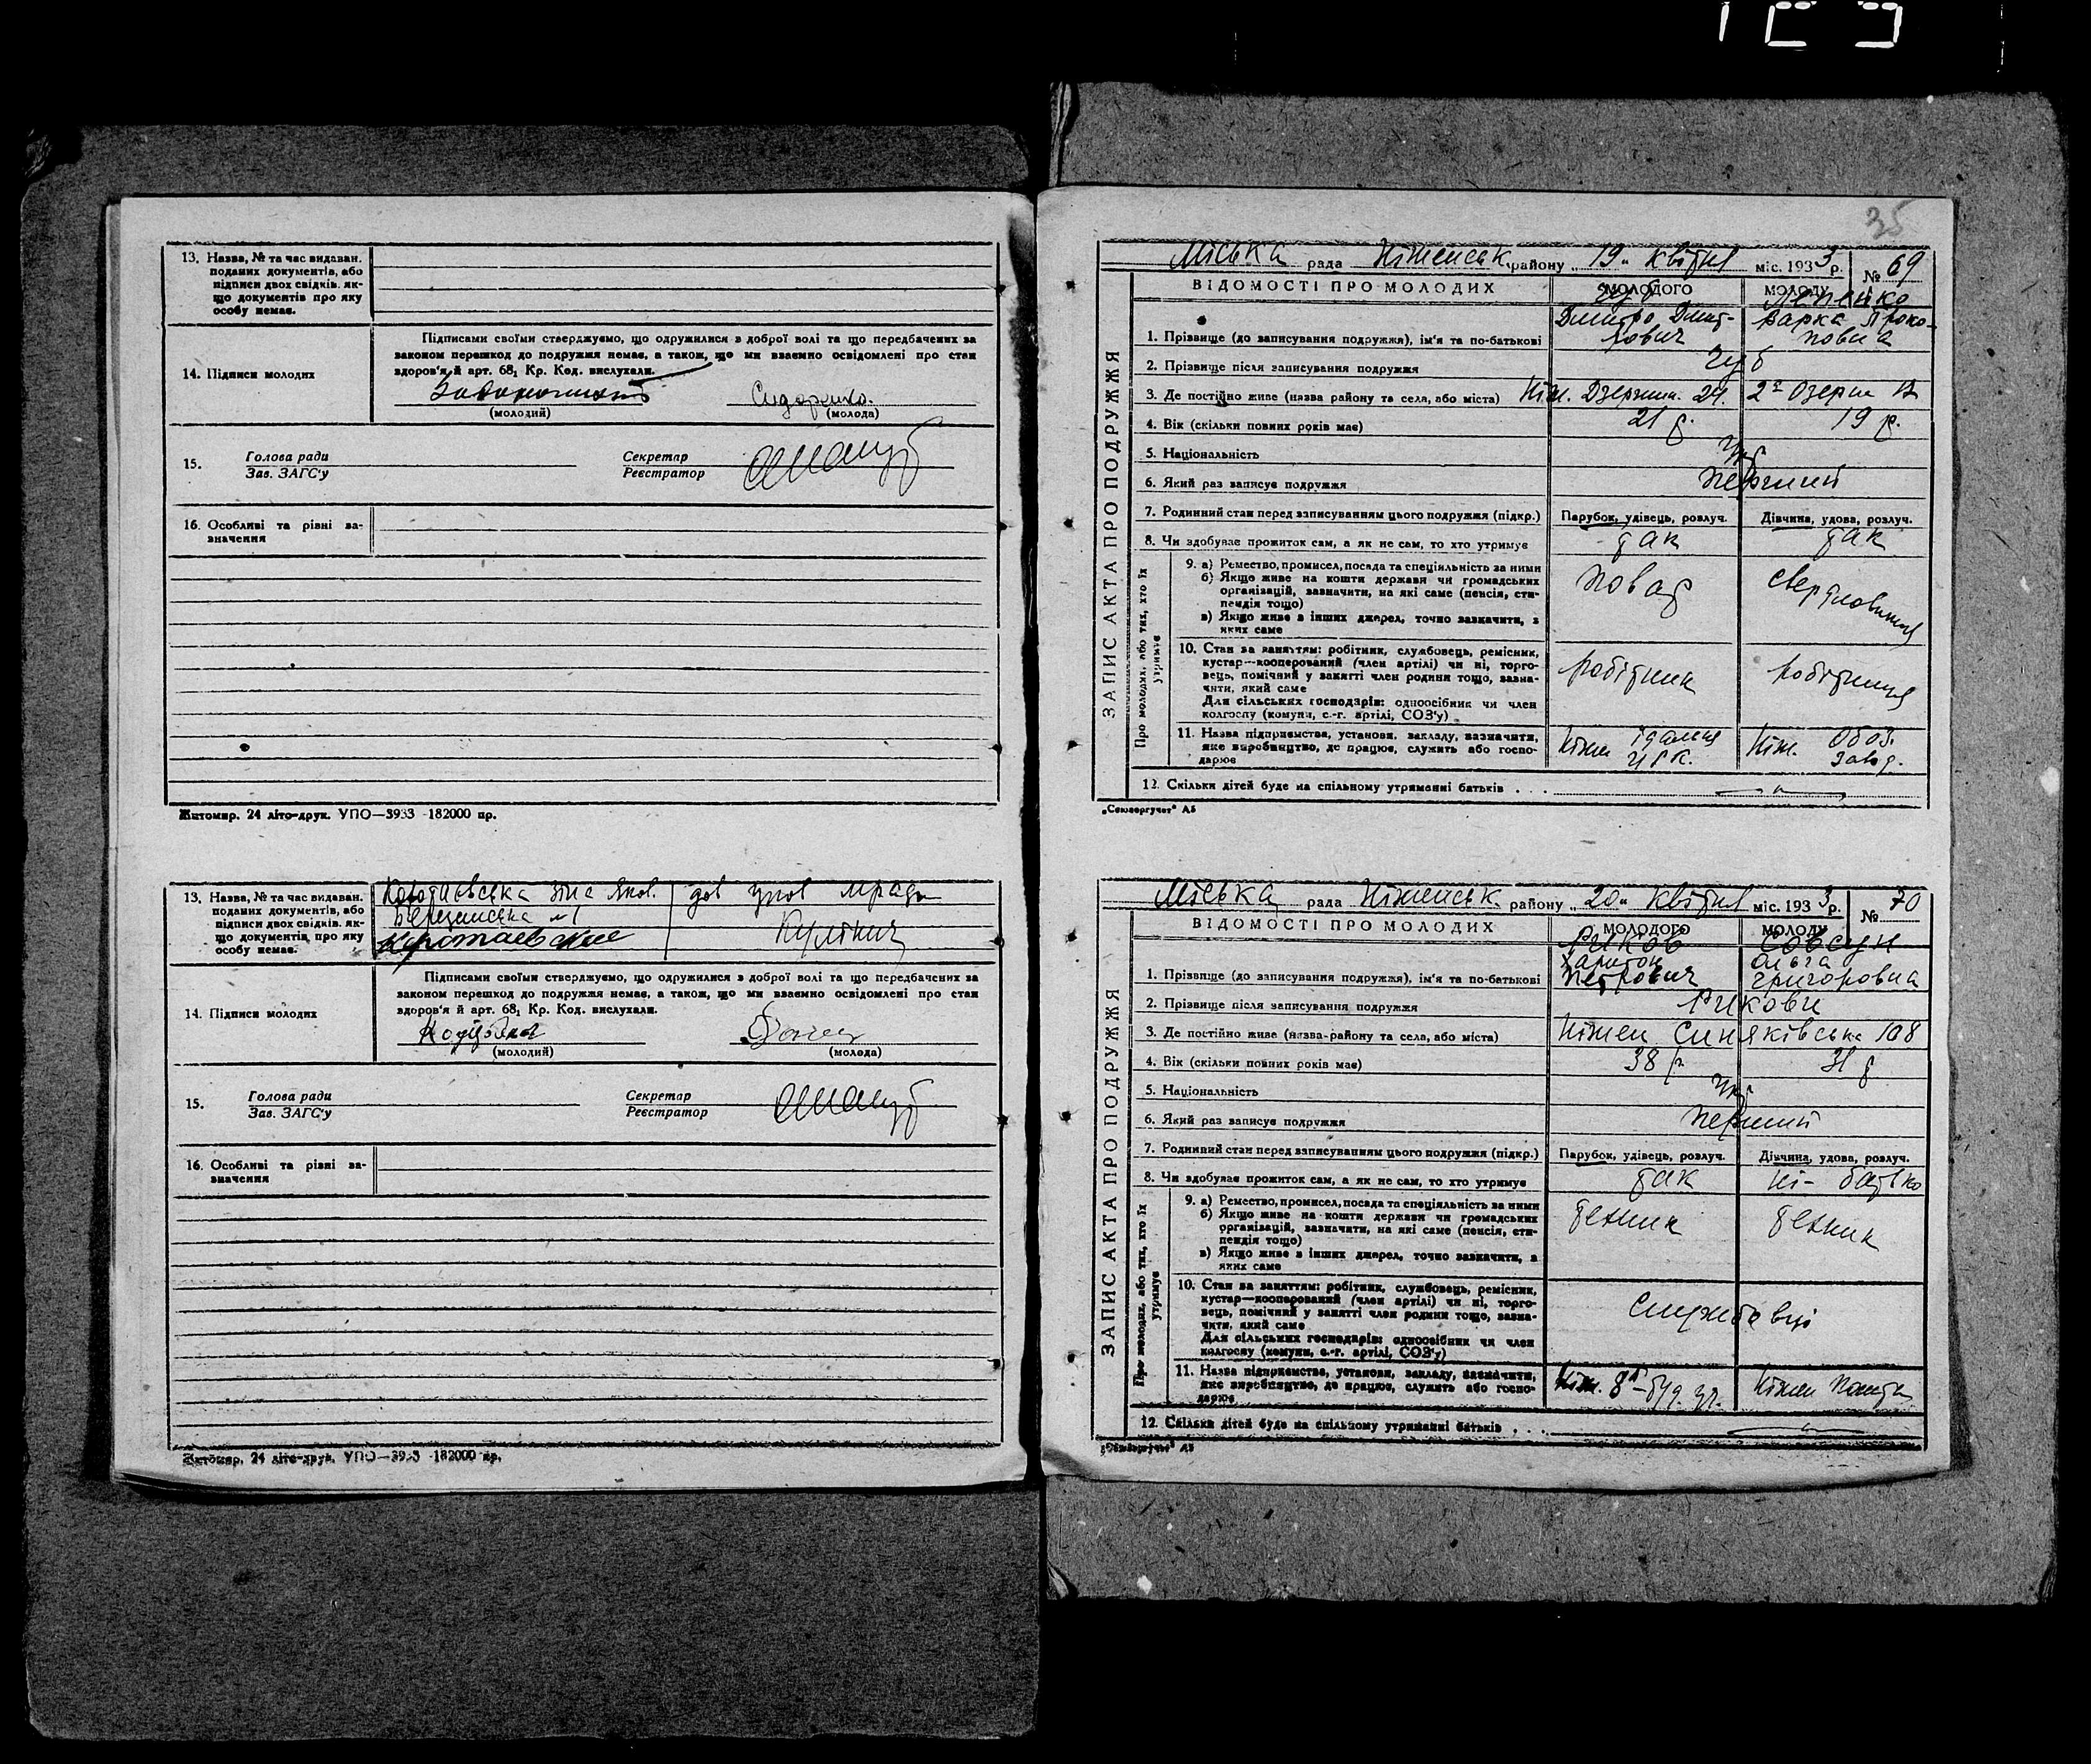 13. Назва, № та час видаван.
поданих документів, або
підписи двох свідків. як-
що документів про яку
особу немає.
14. Підписи молодих
Підписами своїми стверджуємо, що одружилися з доброї волі та що передбачених за
законом перешкод до подружжя немає, а також, що ми взаємно освідомлені про стан
здоров'я й арт. 68₁ Кр. Код. вислухали.
Сидоренко.
(молодий) (молода)
15. Голова ради
Зав. ЗАГС'у
Секретар
Реєстратор
16. Особливі та рівні за-
значення
Житомир. 24 літо-друк. УПО—3933 -182000 пр.
13. Назва, № та час видаван.
поданих документів, або
підписи двох свідків. як-
що документів про яку
особу немає.
14. Підписи молодих
Підписами своїми стверджуємо, що одружилися з доброї волі та що передбачених за
законом перешкод до подружжя немає, а також, що ми взаємно освідомлені про стан
здоров'я й арт. 68₁ Кр. Код. вислухали.
(молодий) (молода)
15. Голова ради
Зав. ЗАГС'у
Секретар
Реєстратор
16. Особливі та рівні за-
значення
Житомир. 24 літо-друк. УПО—3933 -182000 пр.
35
ЗАПИС АКТА ПРО ПОДРУЖЖЯ
Міська рада Ніженськ району „19" квітня міс. 1933 р. № 69
ВІДОМОСТІ ПРО МОЛОДИХ МОЛОДОГО МОЛОДУ
Чуб
Дмитро Дмит-
рович
Лепенко
Варка Проко-
повна
1. Прізвище (до записування подружжя), ім'я та по-батькові
2. Прізвище після записування подружжя Чуб
3. Де постійно живе (назва району та села, або міста) Ніж. Дзержин. 29.
4. Вік (скільки повних років має) 21 р. 19 р.
5. Національність Укр
6. Який раз записує подружжя Перший
7. Родинний стан перед записуванням цього подружжя (підкр.) Парубок, удівець, розлуч. Дівчина, удова, розлуч.
8. Чи здобуває прожиток сам, а як не сам, то хто утримує так так
Про молодих, або тих, хто їх утримує
9. а) Ремество, промисел, посада та спеціяльність за ними
б) Якщо живе на кошти держави чи громадських
організацій, зазначити, на які саме (пенсія, сти-
пендія тощо)
в) Якщо живе з інших джерел, точно зазначити, з
яких саме
Повар свердловниця
10. Стан за заняттям: робітник, службовець, ремісник,
кустар—кооперований (член артілі) чи ні, торго-
вець, помічний у занятті член родини тощо, зазна-
чити, який саме
Для сільських господарів: одноосібник чи член
колгоспу (комуни, с.-г. артілі, СОЗ'у)
робітник робітниця
11. Назва підприємства, установи, закладу, зазначити,
яке виробництво, де працює, служить або госпо-
дарює
Ніжен їдальня
ЦРК.
Ніж. Обоз.
завод.
12. Скільки дітей буде на спільному утриманні батьків . . .
„Союзоргучет" А5
ЗАПИС АКТА ПРО ПОДРУЖЖЯ
Міська рада Ніженськ району „20" квітня міс. 1933 р. № 70
ВІДОМОСТІ ПРО МОЛОДИХ МОЛОДОГО МОЛОДУ
Риков
Харитон
Петрович
Совсун
Ольга
Григоровна
1. Прізвище (до записування подружжя), ім'я та по-батькові
2. Прізвище після записування подружжя Рикови
3. Де постійно живе (назва району та села, або міста) Ніжен Синяківська 108
4. Вік (скільки повних років має) 38 р. 31 р
5. Національність Укр
6. Який раз записує подружжя Перший
7. Родинний стан перед записуванням цього подружжя (підкр.) Парубок, удівець, розлуч. Дівчина, удова, розлуч.
8. Чи здобуває прожиток сам, а як не сам, то хто утримує так ні- батько
Про молодих, або тих, хто їх утримує
9. а) Ремество, промисел, посада та спеціяльність за ними
б) Якщо живе на кошти держави чи громадських
організацій, зазначити, на які саме (пенсія, сти-
пендія тощо)
в) Якщо живе з інших джерел, точно зазначити, з
яких саме
технік технік
10. Стан за заняттям: робітник, службовець, ремісник,
кустар—кооперований (член артілі) чи ні, торго-
вець, помічний у занятті член родини тощо, зазна-
чити, який саме
Для сільських господарів: одноосібник чи член
колгоспу (комуни, с.-г. артілі, СОЗ'у)
службовці
11. Назва підприємства, установи, закладу, зазначити,
яке виробництво, де працює, служить або госпо-
дарює
Ніжен Пошта
12. Скільки дітей буде на спільному утриманні батьків . . .
„Союзоргучет" А5